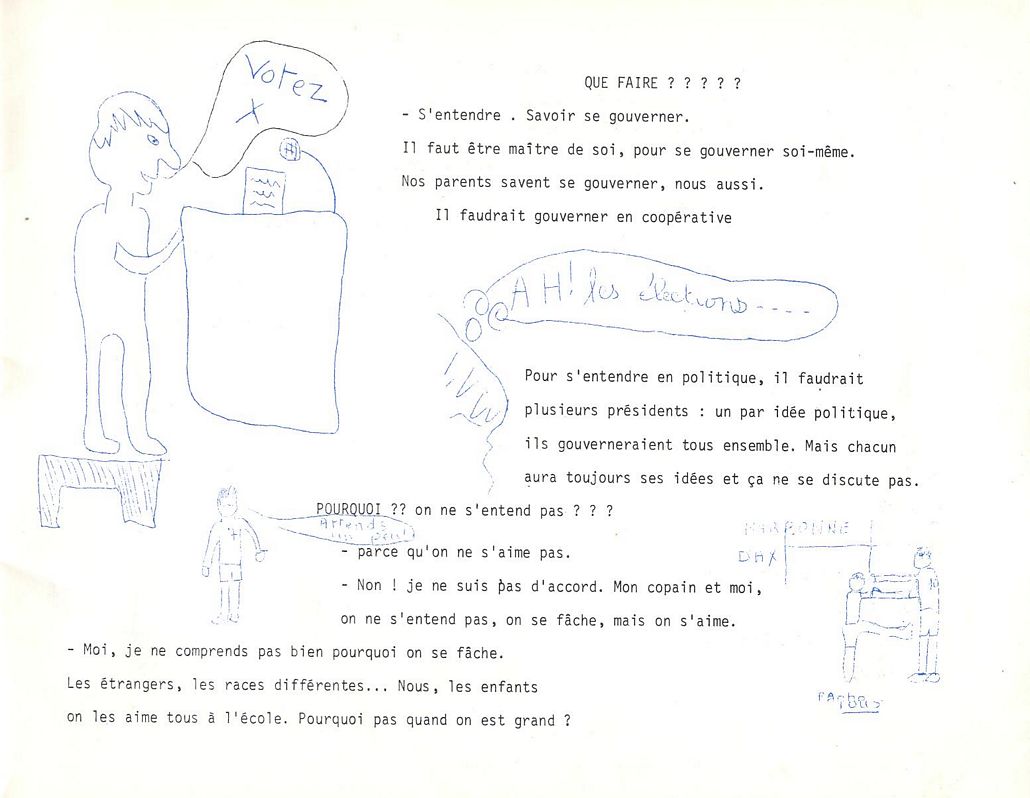 Votez
X
QUE FAIRE ? ? ? ? ?
- S'entendre . Savoir se gouverner.
Il faut être maître de soi, pour se gouverner soi-même.
Nos parents savent se gouverner, nous aussi.
Il faudrait gouverner en coopérative
AH! les élections----
Pour s'entendre en politique, il faudrait
plusieurs présidents : un par idée politique,
ils gouverneraient tous ensemble. Mais chacun
aura toujours ses idées et ça ne se discute pas.
POURQUOI ?? on ne s'entend pas ? ? ?
Attends
un peu!
- parce qu'on ne s'aime pas.
- Non ! je ne suis pas d'accord. Mon copain et moi,
on ne s'entend pas, on se fâche, mais on s'aime.
NARBONNE
DAX
- Moi, je ne comprends pas bien pourquoi on se fâche.
Les étrangers, les races différentes... Nous, les enfants
on les aime tous à l'école. Pourquoi pas quand on est grand ?